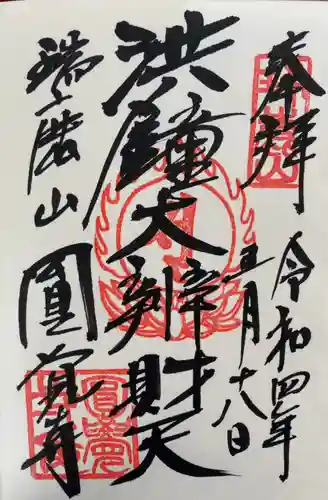 奉拝
令和四年
五月十八日
洪鐘大辨財天
瑞鹿山
圓覚寺